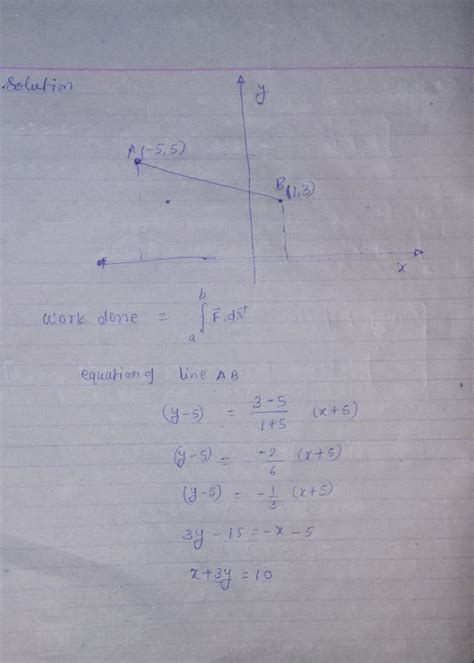 Solution
y
A(-5,5)
B(1,3)
x
Work done = ∫ₐᵇ F⃗.dx⃗
equation of line AB
(y-5) = 3-5/1+5 (x+5)
(y-5) = -2/6 (x+5)
(y-5) = -1/3 (x+5)
3y-15=-x-5
x+3y=10